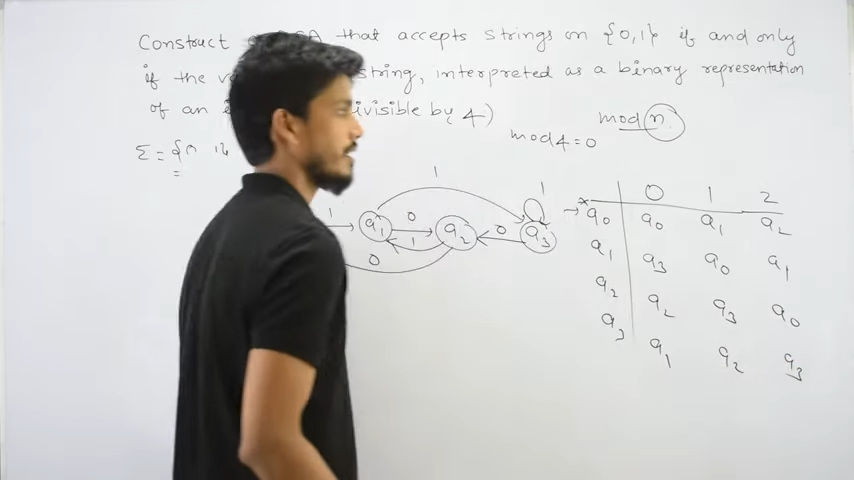 Construct that accepts strings on {0,1} if and only
if the string, interpreted as a binary representation
of an divisible by 4)
mod n
mod 4 = 0
Σ = {
1
0 1 2
→ * q0 q0 q1 q2
q1 q3 q0 q1
q2 q2 q3 q0
q3 q1 q2 q3
1 1
1 q1 0 q2 0 q3
1
0